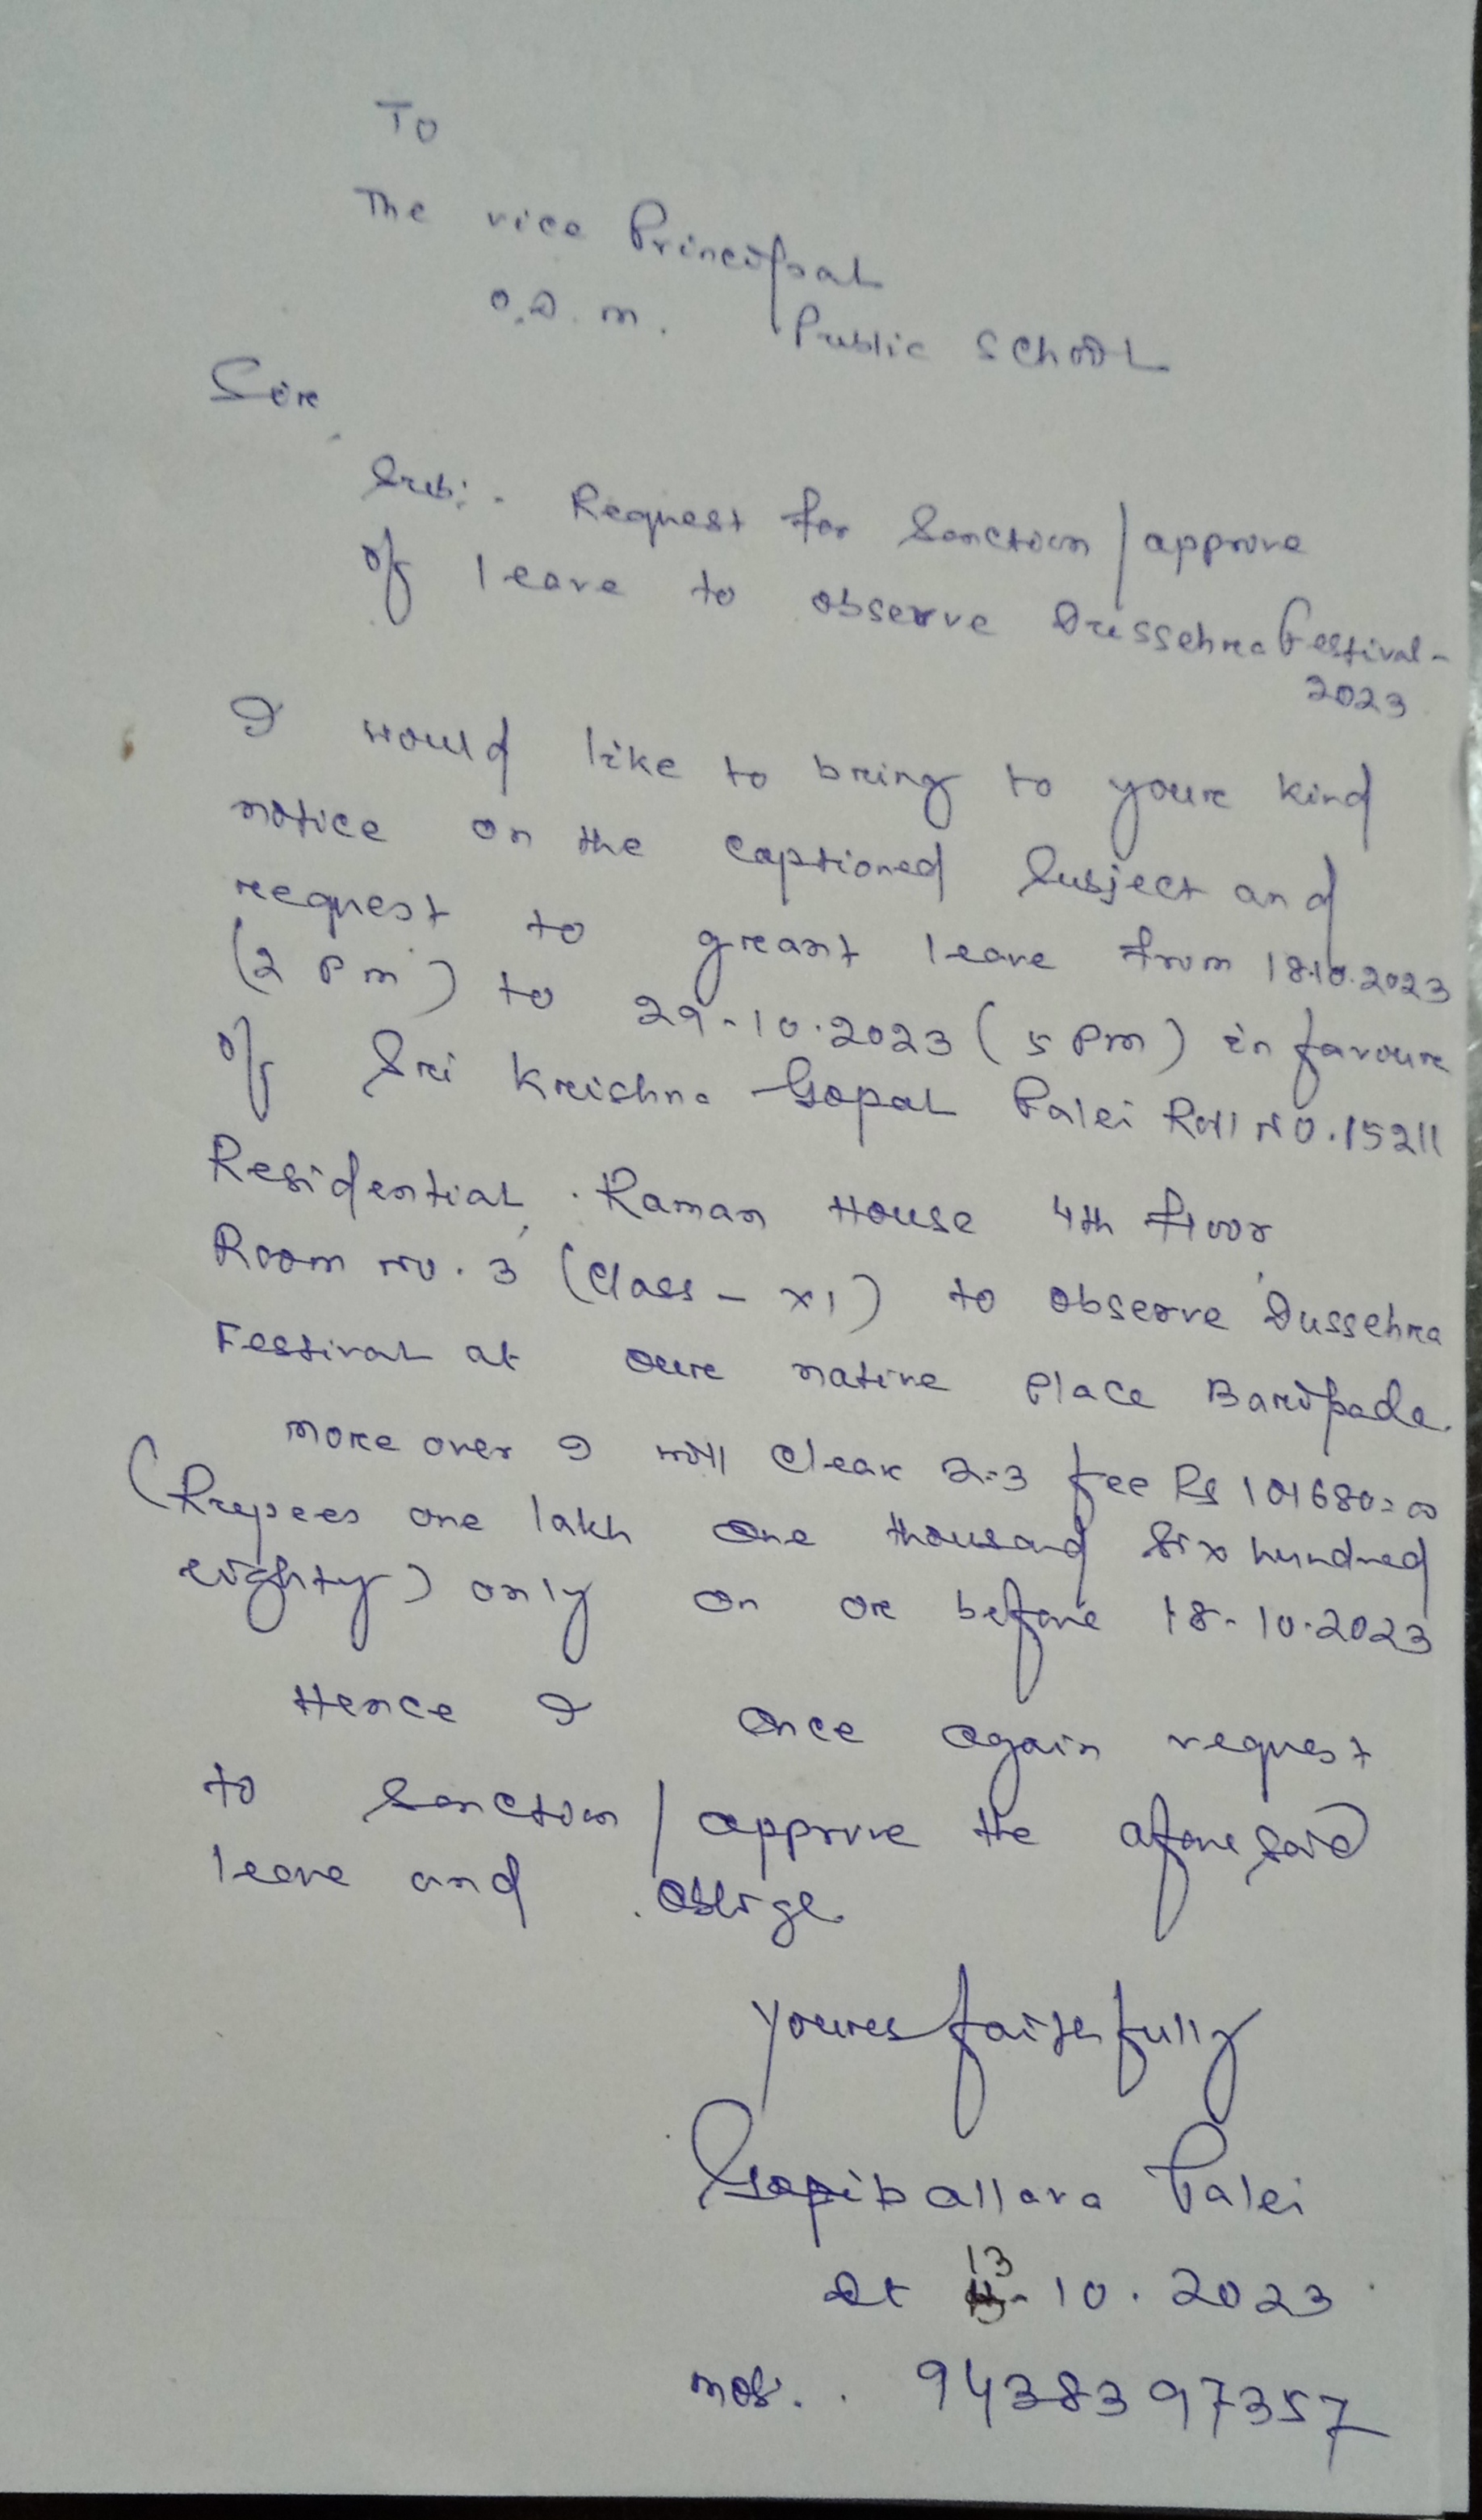 To
The vice Principal
O.D.M. Public School
Sir,
Sub:- Request for Sanction / approve
of leave to observe Dussehra Festival-
2023
I would like to bring to your kind
notice on the captioned Subject and
request to grant leave from 18.10.2023
(2 Pm) to 29-10.2023 (5 Pm) in favour
of Sri Krishna Gopal Palei Roll No. 15211
Residential, Raman House 4th floor,
Room no. 3 (Class - XI) to observe Dussehra
Festival at our native place Baripada.
more over I will clear fee Rs 101680=00
(Rupees one lakh one thousand six hundred
eighty) only on or before 18-10-2023
Hence I once again request
to sanction / approve the aforesaid
leave and oblige
yours faithfully
Gopiballava Palei
Dt 13-10.2023
mob. . 9438397357